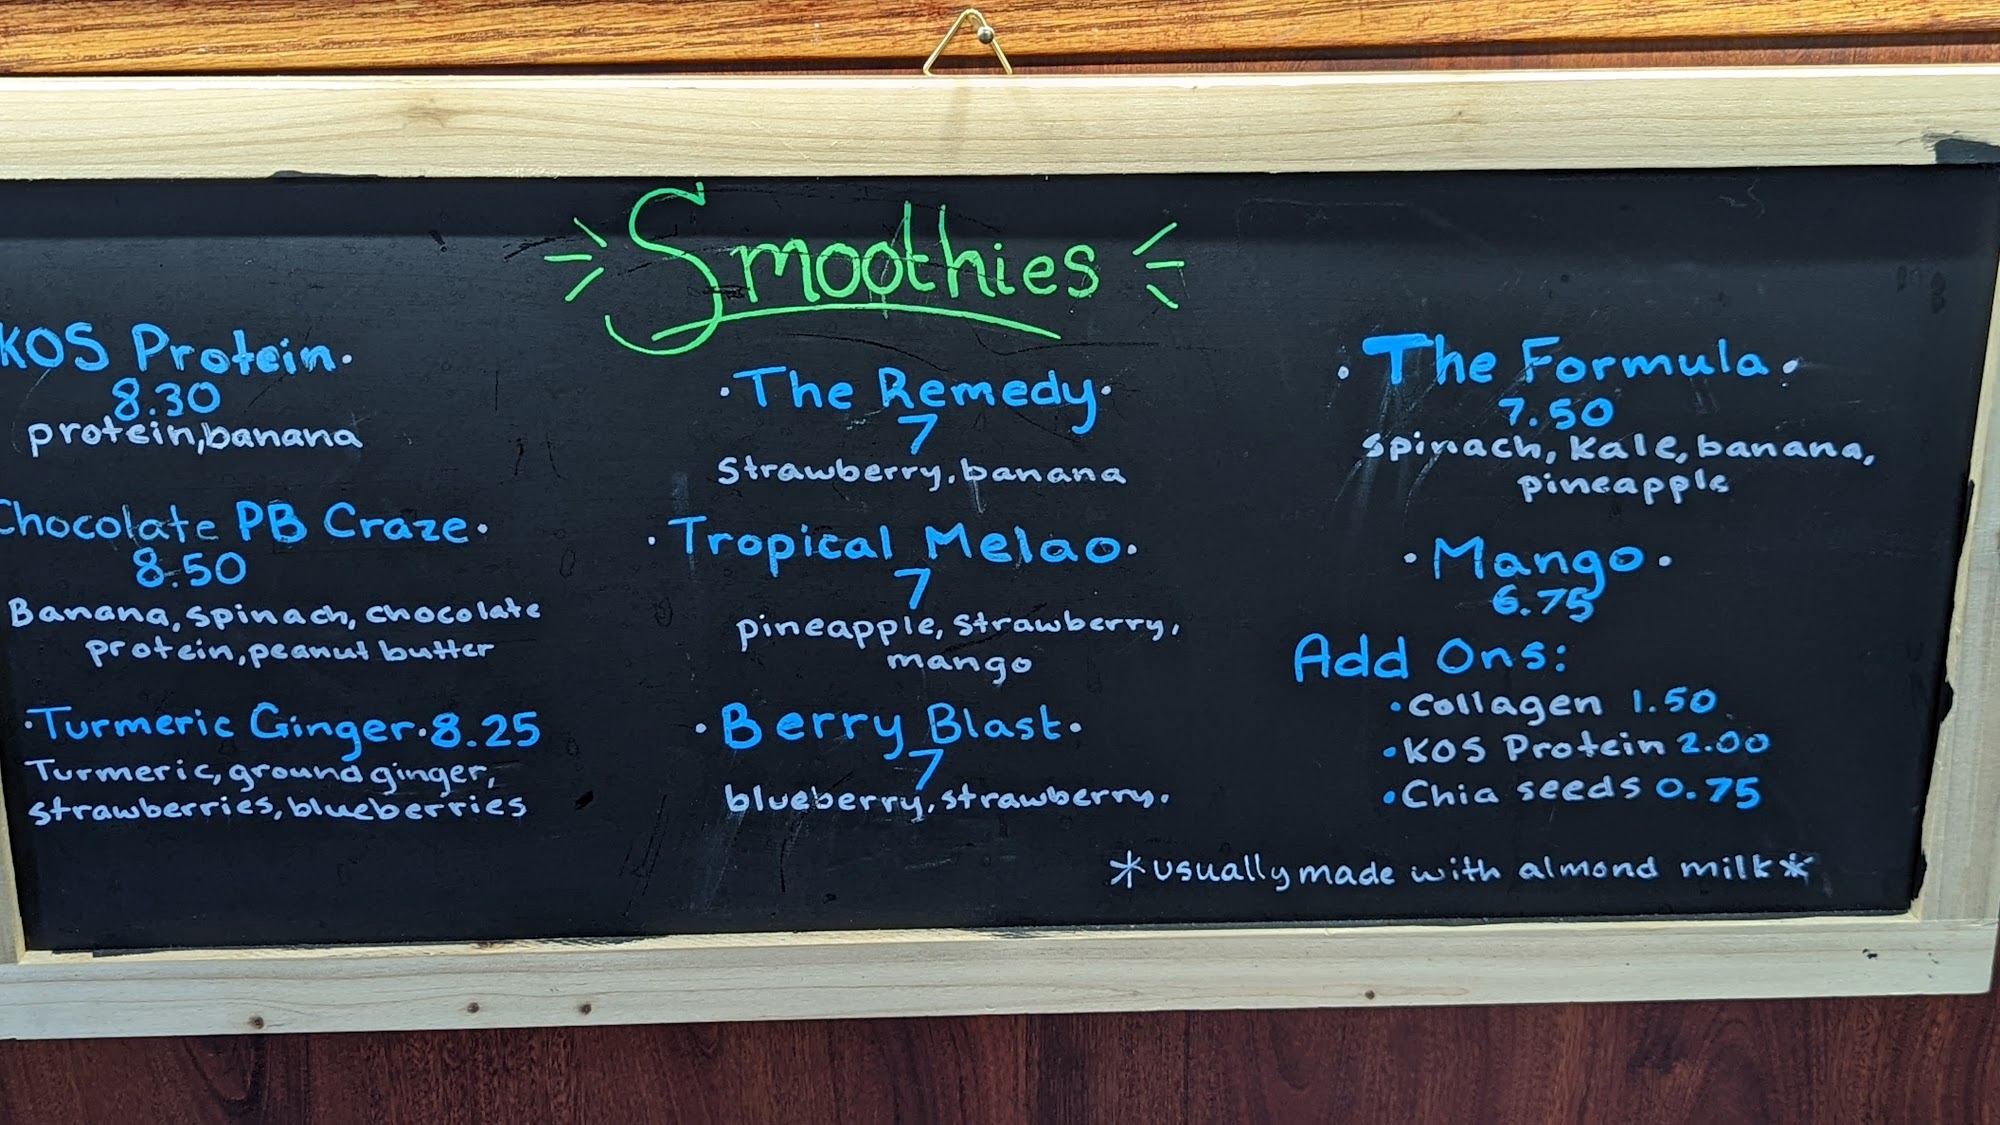 Smoothies
KOS Protein.
8.30
protein, banana
Chocolate PB Craze.
8.50
Banana, spinach, chocolate
protein, peanut butter
·Turmeric Ginger·8.25
Turmeric, ground ginger,
strawberries, blueberries
·The Remedy·
7
strawberry, banana
·Tropical Melao·
7
pineapple, strawberry,
mango
·Berry Blast·
7
blueberry, strawberry.
·The Formula·
7.50
spinach, Kale, banana,
pineapple
·Mango·
6.75
Add Ons:
·Collagen 1.50
·KOS Protein 2.00
·Chia seeds 0.75
*usually made with almond milk*